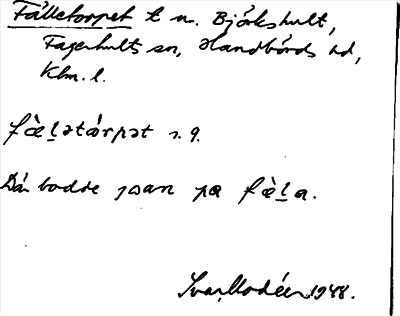 Fälletorpet t n. Björkshult,
Fagerhults sn, Handbörds hd,
Klm. l.
fæ̀ḷətårpət s. 9.
Där bodde pa fæ̀ḷa.
Ivar Modéer 1948.